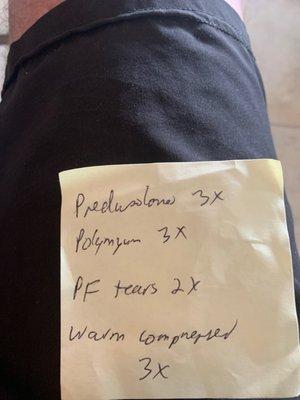 Prednisolone 3x
Polymyxn 3x
PF tears 2x
Warm compressed
3x